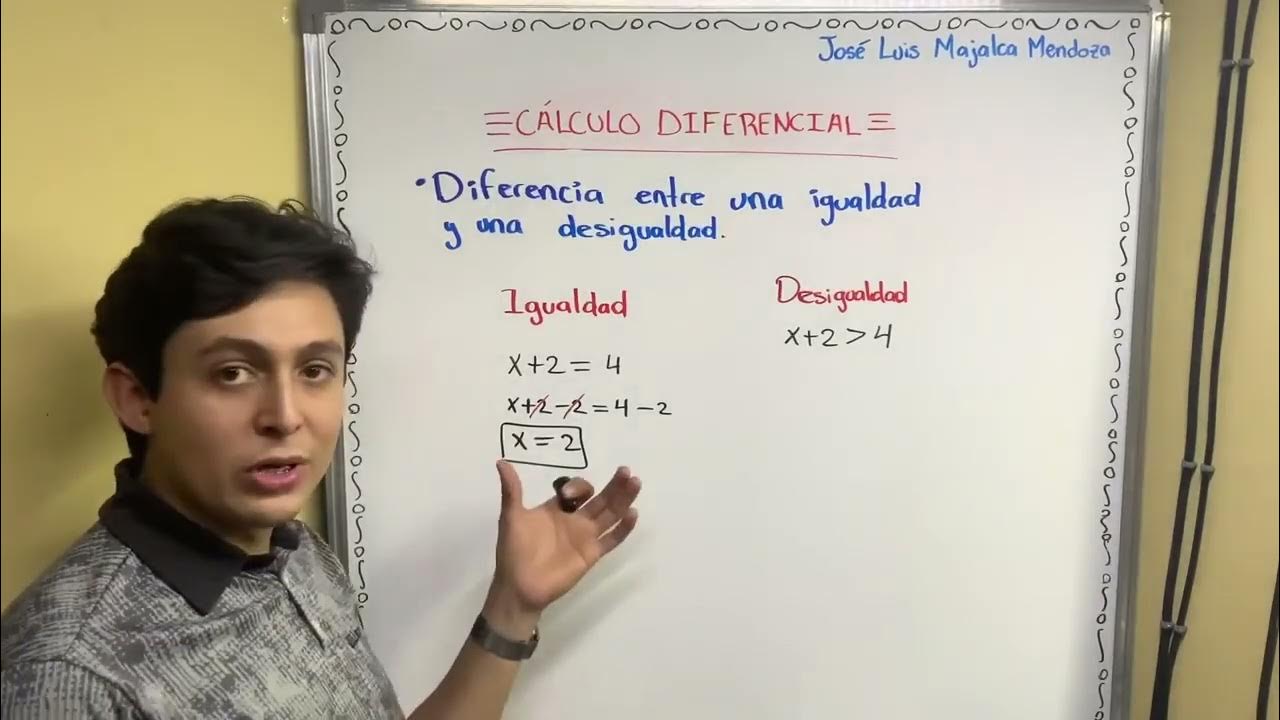 José Luis Majalca Mendoza
CÁLCULO DIFERENCIAL
• Diferencia entre una igualdad
y una desigualdad.
Igualdad
x+2=4
x+2-2=4-2
x=2
Desigualdad
x+2>4